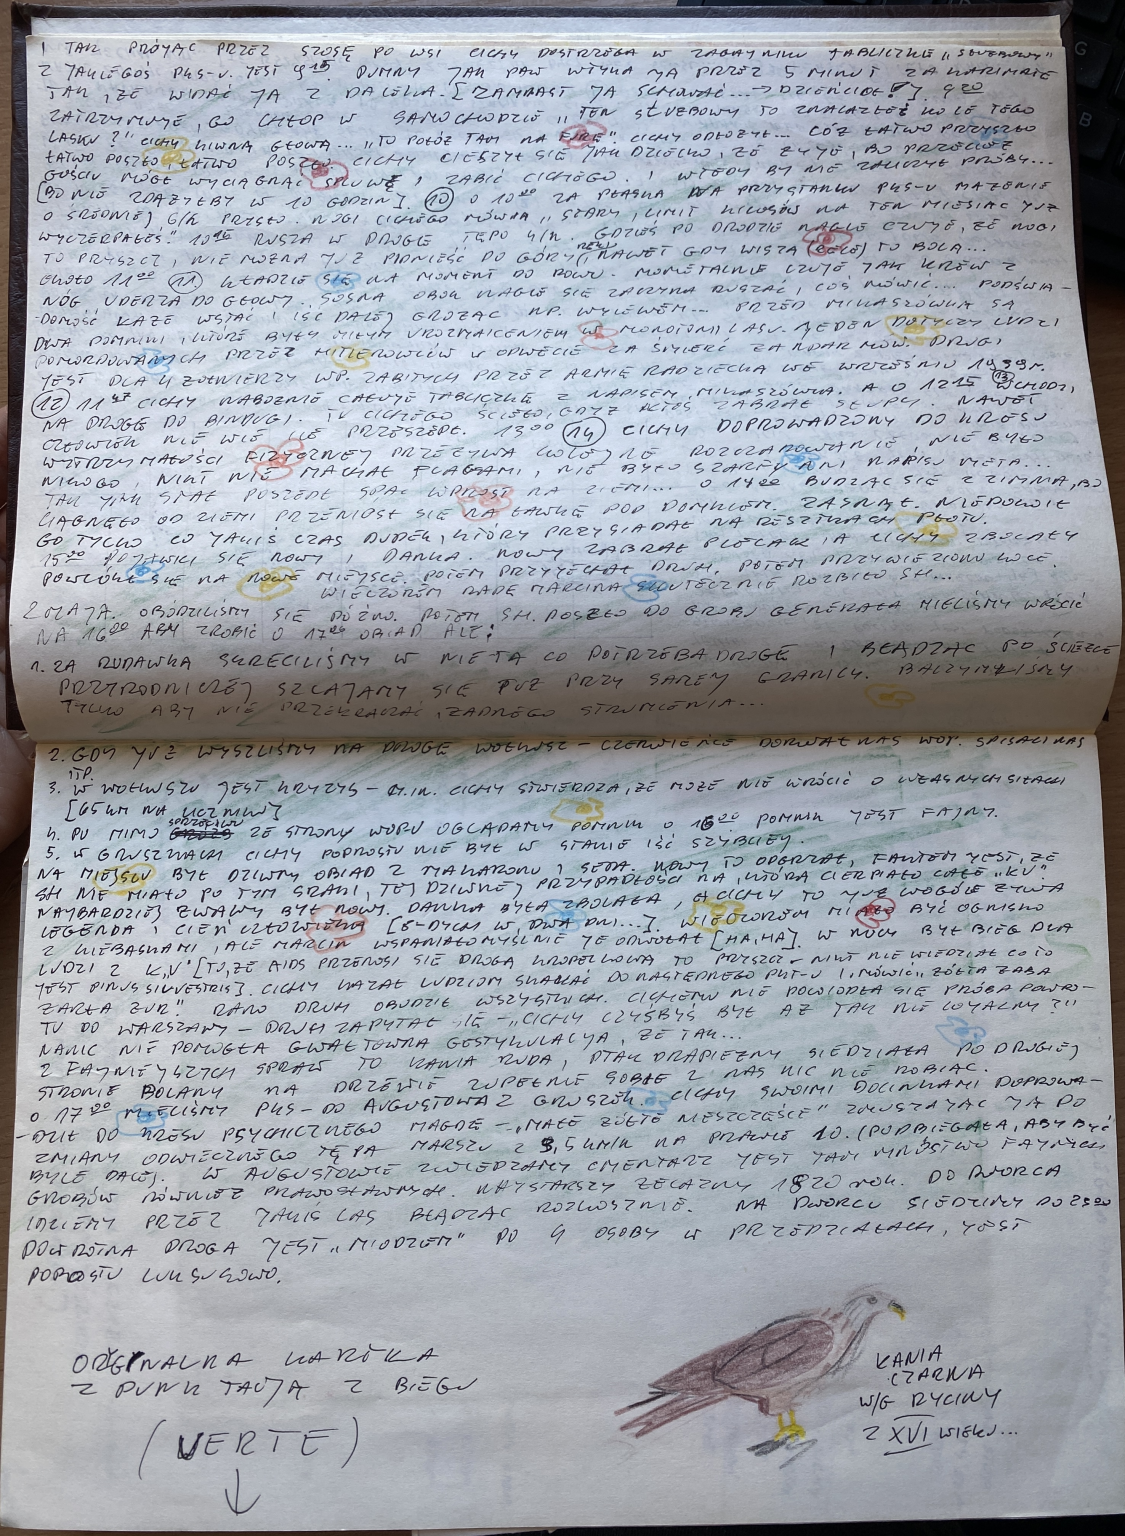 I TAK PRÓJĄC PRZEZ SZOSĘ PO WSI CICHY DOSTRZEGA W ZAGAJNIKU TABLICZKĘ „SŁUŻBOWY”
Z JAKIEGOŚ PKS-U. JEST 9¹⁵. DUMNY JAK PAW WTYKA JĄ PRZEZ 5 MINUT ZA KARIMATĘ
TAK, ŻE WIDAĆ JĄ Z DALEKA. [ZAMIAST JĄ SCHOWAĆ... → DZIECIOE!] 9²⁰
ZATRZYMUJE GO CHŁOP W SAMOCHODZIE „TEN SŁUŻBOWY TO ZNALAZŁEŚ KOŁO TEGO
LASKU?” CICHY KIWNĄ GŁOWĄ... „TO POŁÓŻ TAM NA” CICHY ODŁOŻYŁ... CÓŻ ŁATWO PRZYSZŁO
ŁATWO POSZŁO ŁATWO POSZŁO CICHY CIESZYŁ SIĘ JAK DZIECKO, ŻE ŻYJE, BO PRZECIEŻ
GOŚCIU MÓGŁ WYCIĄGNĄĆ I ZABIĆ CICHEGO. I WTEDY BY NIE ZALICZYŁ PRÓBY...
[BO NIE ZDĄŻYŁBY W 10 GODZIN]. (10) O 10⁰⁰ ZA PŁASKĄ NA PRZYSTANKU PKS-U MARZENIE
O ŚREDNIEJ 6/H PRYSŁO. NOGI CICHEGO MÓWIĄ „STARY, LIMIT KILOSÓW NA TEN MIESIĄC JUŻ
WYCZERPAŁEŚ.” 10¹⁵ RUSZA W DROGĘ TĘPO 4/H. GDZIEŚ PO DRODZE NAGLE CZUJE, ŻE NOGI
TO PRYSZCZ, NIE MOŻNA JUŻ PODNIEŚĆ DO GÓRY RĘKI, NAWET GDY WISZĄ (RĘCE) TO BOLĄ...
OKOŁO 11⁰⁰ (11) KŁADZIE SIĘ NA MOMENT DO ROWU. MOMETALNIE CZUJE JAK KREW Z
NÓG UDERZA DO GŁOWY. SOSNA OBOK NAGLE SIĘ ZACZYNA RUSZAĆ, COŚ MÓWIĆ.... PODŚWIA-
DOMOŚĆ KAŻE WSTAĆ I IŚĆ DALEJ GROŻĄC NP. WYLEWEM... PRZED MIKASZÓWKĄ SĄ
DWA POMNIKI, KTÓRE BYŁY MIŁYM UROZMAICENIEM W MONOTONI LASU. JEDEN DOTYCZY LUDZI
POMORDOWANYCH PRZEZ HITLEROWCÓW W ODWECIE ZA ŚMIERĆ ŻANDARMÓW. DRUGI
JEST DLA 4 ŻOŁNIERZY WP. ZABITYCH PRZEZ ARMIĘ RADZIECKĄ WE WRZEŚNIU 1939R.
(12) 11⁴⁷ CICHY NABOŻNIE CAŁUJE TABLICZKĘ Z NAPISEM MIKASZÓWKA. A O 12¹⁵ (13) WCHODZI
NA DROGĘ DO BINDUGI. TU CICHEGO ŚCIĘŁO, GDYŻ KTOŚ ZABRAŁ SŁUPKI. NAWET
CZŁOWIEK NIE WIE ILE PRZESZEDŁ. 13⁰⁰ (14) CICHY DOPROWADZONY DO KRESU
WYTRZYMAŁOŚCI FIZYCZNEJ PRZEŻYWA KOLEJNE ROZCZAROWANIE NIE BYŁO
NIKOGO, NIKT NIE MACHAŁ FLAGAMI, NIE BYŁO SZARFY ANI NAPISU META...
TAK JAK STAŁ POSZEDŁ SPAĆ WPROST NA ZIEMI... O 14⁰⁰ BUDZĄC SIĘ Z ZIMNA, BO
CIĄGNĘŁO OD ZIEMI PRZENIÓSŁ SIĘ NA ŁAWKĘ POD DOMKIEM. ZASNĄŁ. NIEPOKOIŁ
GO TYLKO CO JAKIŚ CZAS DUDEK, KTÓRY PRZYSIADAŁ NA RESZTKACH PŁOTU.
15⁰⁰ POJAWILI SIĘ NOWY I DANKA. NOWY ZABRAŁ PLECAK, A CICHY ZBOLAŁY
POWLÓKŁ SIĘ NA NOWE MIEJSCE. POTEM PRZYJECHAŁ DRUH, POTEM PRZYWIEZIONO KOCE.
WIECZOREM RADĘ MARCINA SKUTECZNIE ROZBIŁO SH...
2 MAJA. OBUDZILIŚMY SIĘ PÓŹNO. POTEM SH. POSZŁO DO GROBU GENERAŁA MIELIŚMY WRÓCIĆ
NA 16⁰⁰ ABY ZROBIĆ O 17⁰⁰ OBIAD ALE:
1. ZA RUDAWKĄ SKRĘCILIŚMY W NIE TĄ CO POTRZEBA DROGĘ I BŁĄDZĄC PO ŚCIEŻCE
PRZYRODNICZEJ SZLAJAMY SIĘ TUŻ PRZY SAMEJ GRANICY. BACZYMYLIŚMY
TYLKO ABY NIE PRZEKRACZAĆ ŻADNEGO STRUMIENIA...
2. GDY JUŻ WYSZLIŚMY NA DROGĘ WOŁKUSZ - CZERWIENCE DORWAŁ NAS WOP. SPISALI NAS
ITP.
3. W WOŁKUSZU JEST KRYZYS - M.IN. CICHY STWIERDZA, ŻE MOŻE NIE WRÓCIĆ O WŁASNYCH SIŁACH
[65 KM NA LICZNIKU]
4. PO MIMO SPRZECIWU ZE STRONY WOPU OGLĄDAMY POMNIK O 16⁰⁰ POMNIK JEST FAJNY.
5. W GRUSZKACH CICHY POPROSTU NIE BYŁ W STANIE IŚĆ SZYBCIEJ.
NA MIEJSCU BYŁ DZIWNY OBIAD Z MAKARONU I SERA. NOWY TO ODGRZAŁ, FAKTEM JEST, ŻE
SH NIE MIAŁO PO TYM SRAKI, TEJ DZIWNEJ PRZYPADŁOŚCI NA, KTÓRĄ CIERPIAŁO CAŁE „KV”
NAJBARDZIEJ ŻWAWY BYŁ NOWY. DANKA BYŁA ZBOLAŁA, A CICHY TO JUŻ WOGÓLE ŻYWA
LEGENDA I CIEŃ CZŁOWIEKA [8-DYCH W DWA DNI...]. WIECZOREM MIAŁO BYĆ OGNISKO
Z KIEŁBASKAMI, ALE MARCIN WSPANIAŁOMYŚLNIE JE ODWOŁAŁ [HA, HA]. W NOCY BYŁ BIEG DLA
LUDZI Z K,V” [TO, ŻE AIDS PRZENOSI SIĘ DROGĄ KROPELKOWĄ TO PRYSZCZ - NIKT NIE WIEDZIAŁ CO TO
JEST PINUS SILVESTRIS]. CICHY KAZAŁ LUDZIOM SKAKAĆ DO NASTĘPNEGO PKT-U I MÓWIĆ „ŻÓŁTA ŻABA
ŻARŁA ŻUR”. RANO DRUH OBUDZIŁ WSZYSTKICH. CICHEMU NIE POWIODŁA SIĘ PRÓBA POWRO-
TU DO WARSZAWY - DRUH ZAPYTAŁ SIĘ - „CICHY CZYŚBYŚ BYŁ AŻ TAK NIE LOJALNY?”
NANIC NIE POMOGŁA GWAŁTOWNA GESTYKULACJA, ŻE TAK...
Z FAJNIEJSZYCH SPRAW TO KANIA RUDA, PTAK DRAPIEŻNY SIEDZIAŁA PO DRUGIEJ
STRONIE POLANY NA DRZEWIE ZUPEŁNIE SOBIE Z NAS NIC NIE ROBIĄC.
O 17⁰⁰ MIELIŚMY PKS - DO AUGUSTOWA Z GRUSZEK. CICHY SWOIMI DOCINKAMI DOPROWA-
-DZIŁ DO KRESU PSYCHICZNEGO MAGDĘ - „MAŁE ŻÓŁTE NIESZCZĘŚCIE” ZMUSZAJĄC JĄ DO
ZMIANY ODWIECZNEGO TĘPA MARSZU Z 3,5 KM/H NA PRAWIE 10. (PODBIEGAŁA, ABY BYĆ
BYLE DALEJ. W AUGUSTOWIE ZWIEDZAMY CMENTARZ JEST TAM MNÓSTWO FAJNYCH
GROBÓW RÓWNIEŻ PRAWOSŁAWNYCH. NAJSTARSZY ŻELAZNY 1820 ROK. DO DWORCA
IDZIEMY PRZEZ JAKIŚ LAS BŁĄDZĄC ROZKOSZNIE. NA DWORCU SIEDZIMY DO 23⁰⁰
POWROTNA DROGA JEST „MIODZEM” PO 4 OSOBY W PRZEDZIAŁACH, JEST
POPROSTU LUKSUSOWO.
ORGINALNA KARTKA
Z PUNKTACJĄ Z BIEGU
(VERTE)
KANIA
CZARNA
W/G RYCINY
Z XVI WIEKU...